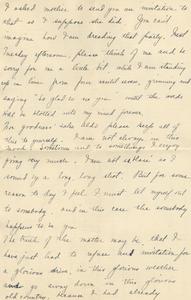 I asked mother to send you an invitation to
that as I suppose she did. You can't
imagine how I am dreading that party. Next
Tuesday afternoon, please think of me and be
sorry for me a little bit when I am standing
up in line from four until seven, grinning and
saying "So glad to see you" until the words
will be blotted into my mind forever.
For goodness sake please keep all of
this to yourself. I am not always in this
mood & sometimes and to something I enjoy
going very much. I am not so as
round by a long long shot. But for some
reason to day I feel I must let myself out
to somebody, and in this case the somebody
happens to be you.
The truth of the matter may be, that I
have just had to refuse an invitation for
a glorious drive in this glorious weather
and go away down in this glorious
old country. Because I had already